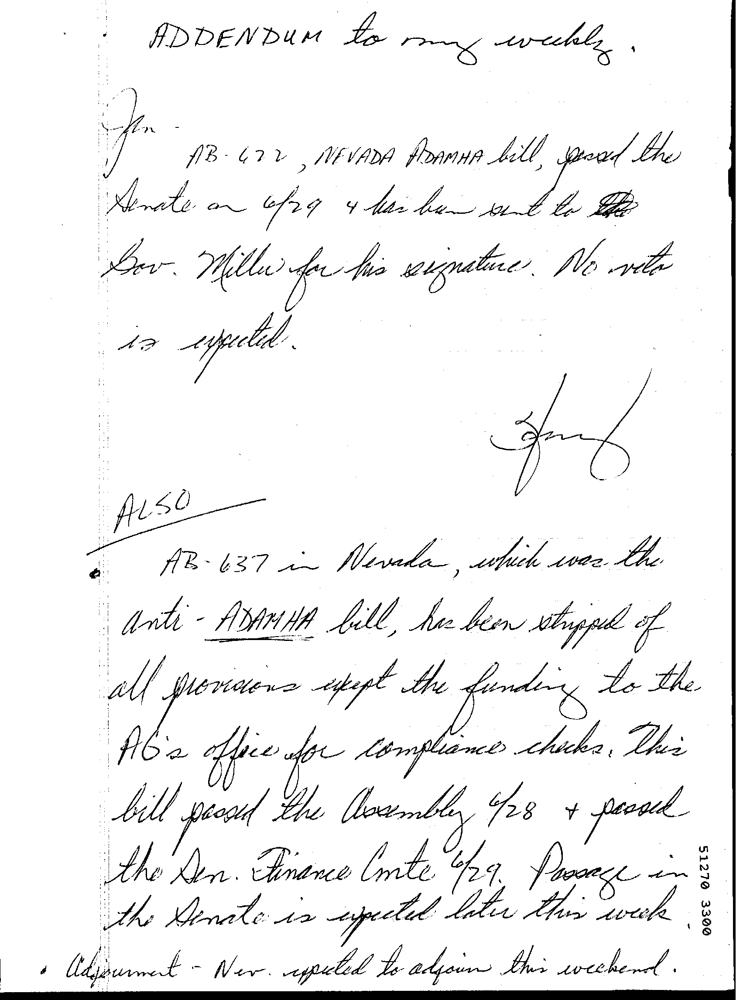 ADDENDUM to my weekly.
Jan -
AB-622, NEVADA ADAMHA bill, passed the
Senate on 6/29 & has been sent to
Gov. Miller for his signature. No veto
is expected.
ALSO
• AB-637 in Nevada, which was the
anti-ADAMHA bill, has been stripped of
all provisions except the funding to the
AG's office for compliance checks. This
bill passed the Assembly 6/28 + passed
the Sen. Finance Cmte 6/29. Passage in
the Senate is expected later this week.
• Adjournment - Nev. expected to adjourn this weekend.
51270 3300